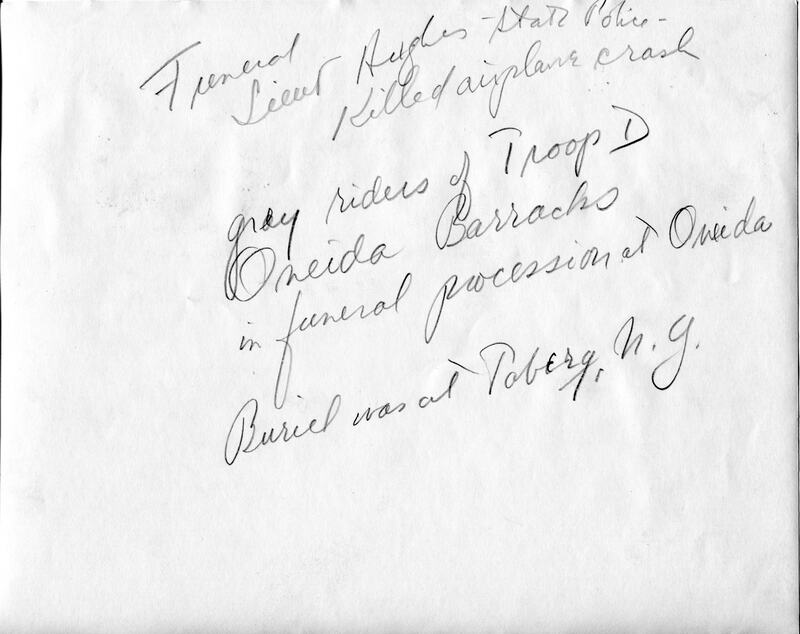 Funeral
Lieut Hughes - State Police -
Killed airplane crash
gray riders of Troop D
Oneida Barracks
in funeral procession at Oneida
Buriel was at Taberg, N.Y.